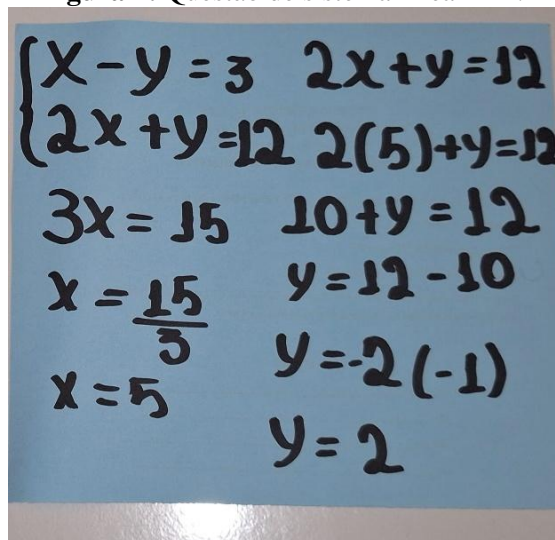 x - y = 3
2x + y = 12
3x = 15
x = 15/3
x = 5
2x + y = 12
2(5) + y = 12
10 + y = 12
y = 12 - 10
y = -2 (-1)
y = 2